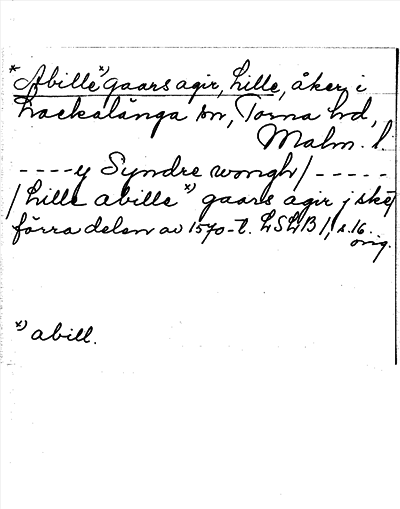 * Abille x) gaars agir, Lille, åker i
Lackalänga sn, Torna hd,
Malm. l.
----y Syndre wongh/-----
/Lille abille x) gaars agir j sket
förra delen av 1570-t. LSLB 1, s. 16.
orig.
x) abill.